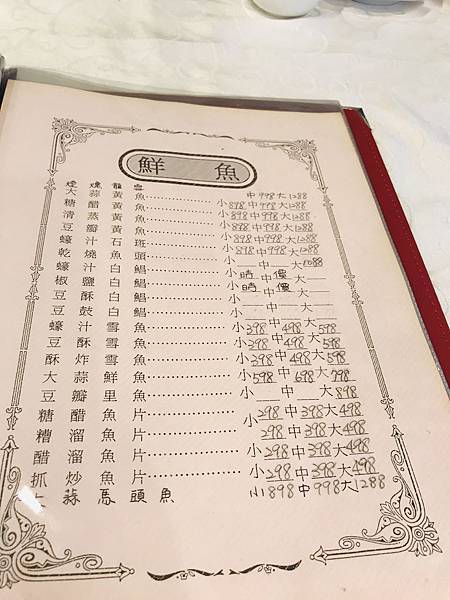 鮮魚
煙燻龍雪 中998大1288
大蒜黃魚 小898中998大1288
糖醋黃魚 小898中998大1288
清蒸黃魚 小898中998大1288
豆瓣黃魚 小898中998大1288
蠔汁石斑 小898中998大1288
乾燒魚頭 小__中__大1088
蠔汁白鯧 小時中價大__
椒鹽白鯧 小時中價大__
豆酥白鯧 小__中__大__
豆鼓白鯧 小__中__大__
蠔汁雪魚 小398中498大598
豆酥雪魚 小398中498大598
酥炸雪魚 小398中498大598
大蒜鮮魚 小598中698大798
豆瓣里魚 小__中__大898
糖醋魚片 小298中398大498
糟溜魚片 小298中398大498
醋溜魚片 小298中398大498
抓炒魚片 小298中398大498
大蒜馬頭魚 小898中998大1288